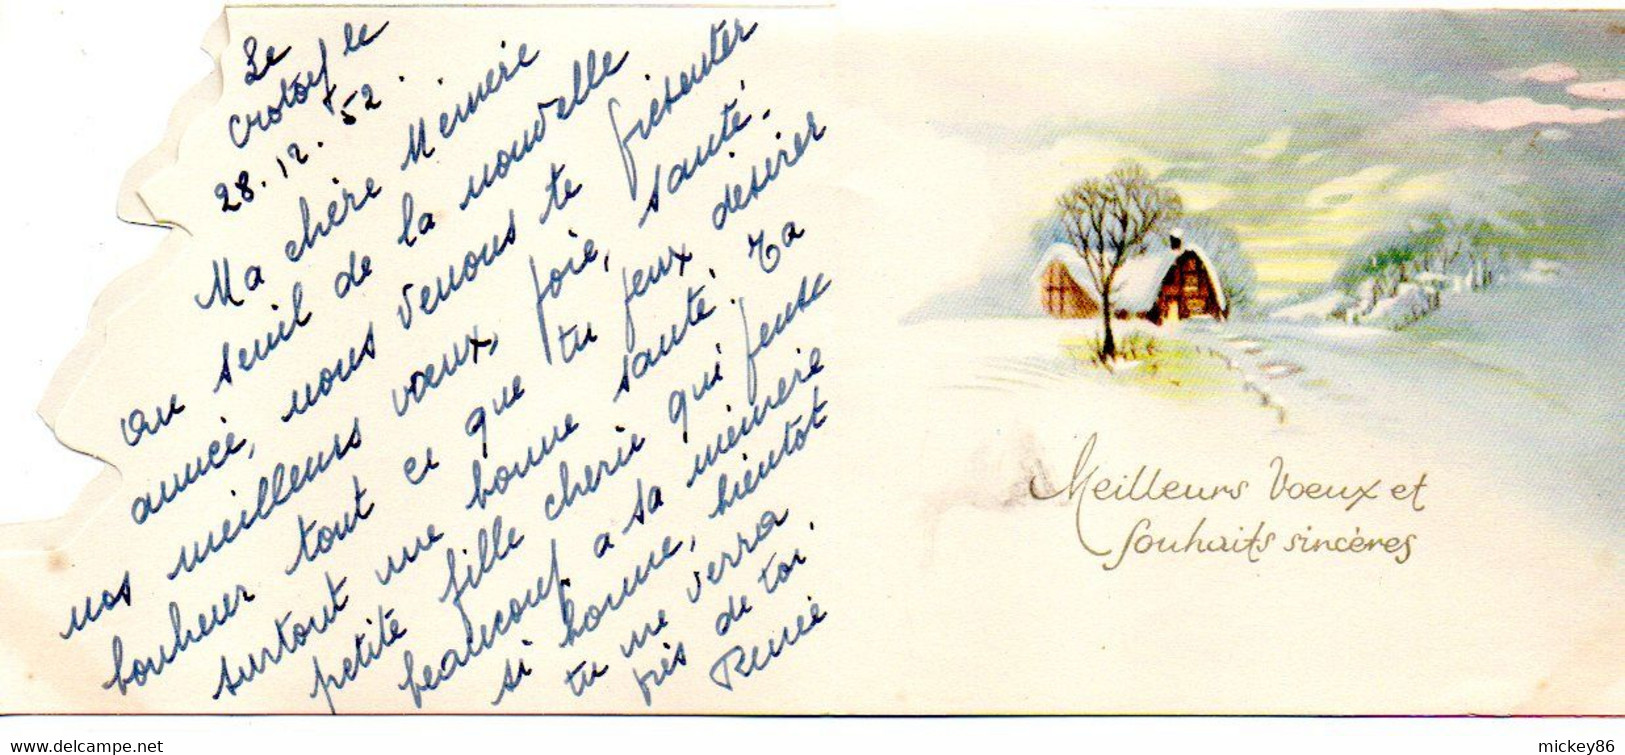 Le
Crotoy le
28.12.52.
Ma chère Mémère
Au seuil de la nouvelle
année, nous venons te présenter
nos meilleurs vœux, joie, santé.
bonheur tout ce que tu peux désirer
surtout une bonne santé. Ta
petite fille cherie qui pense
beaucoup a sa mémère
si bonne, bientot
tu me verra
près de toi.
Renée
Meilleurs Voeux et
Souhaits sincères
www.delcampe.net
mickey86